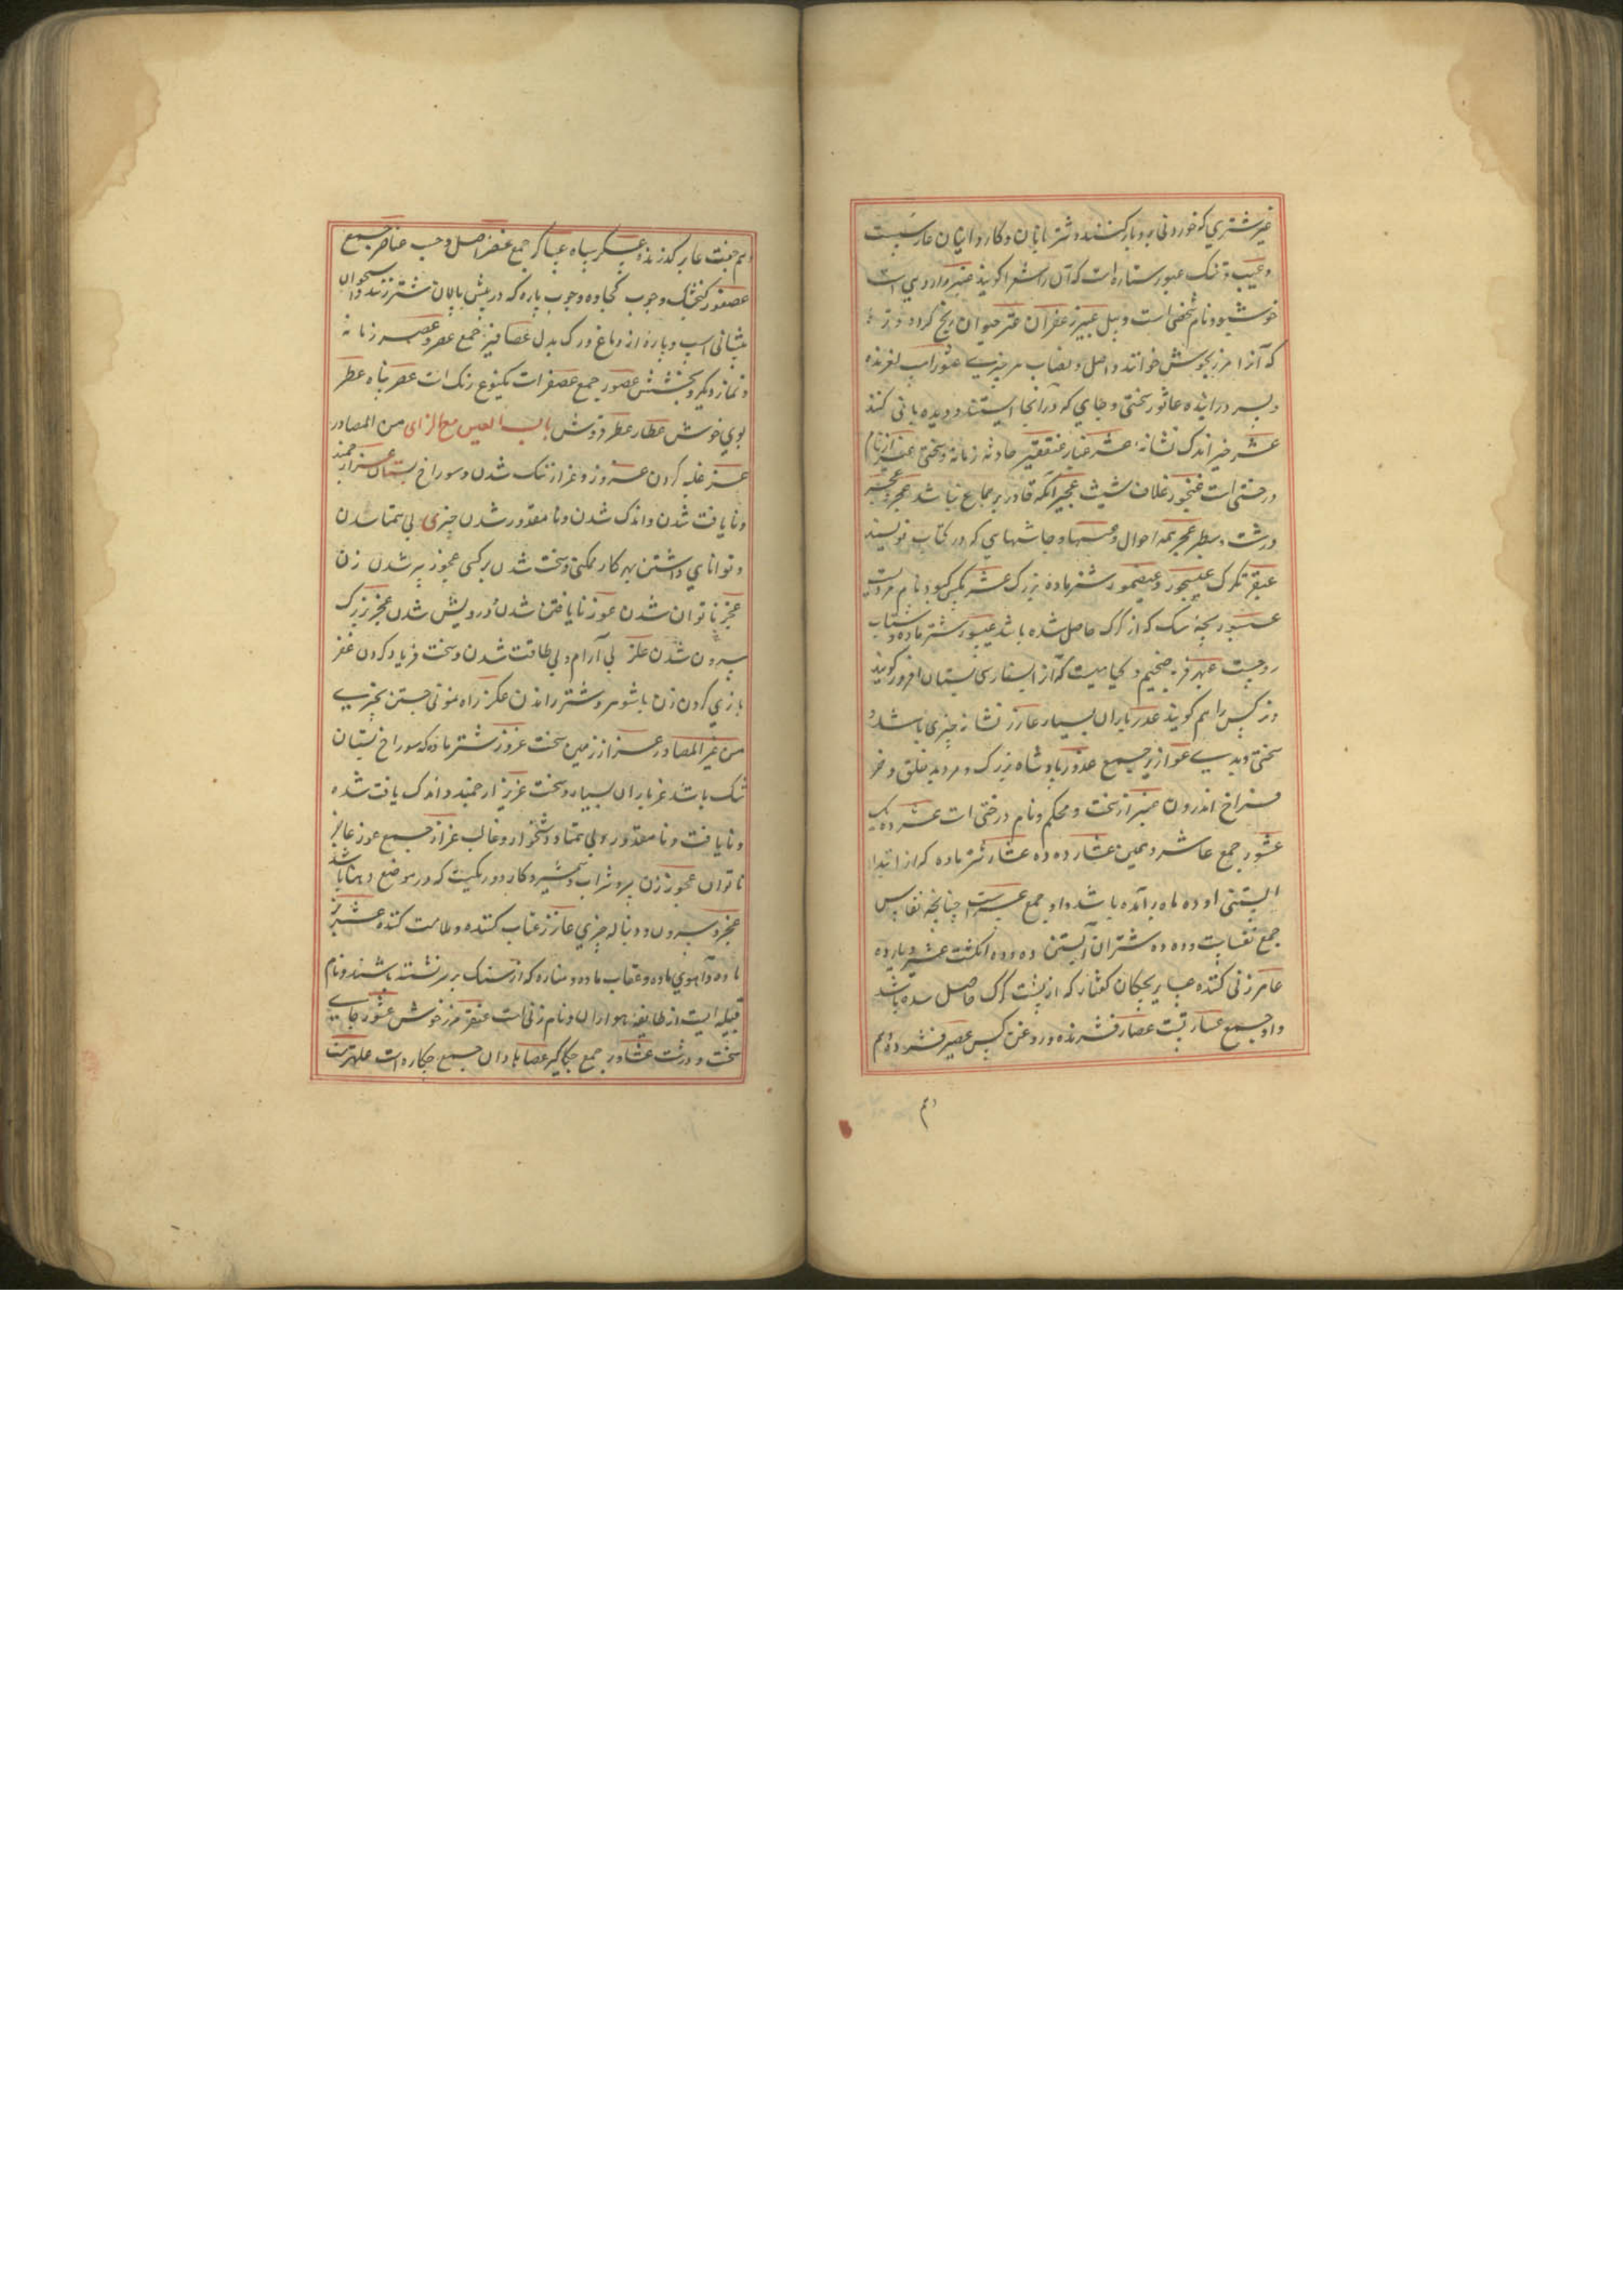 خیر شتری که خوردنی برو بار کنند و شتربانان و کاروانیان عار
و عیب و ننک عبور ستاره است که آن را شعرا کویند عبیر داروی است
خوشبو و نام شخصی است و عبیر زعفران عتر
که آنرا مرزنجوش خوانند و اصل و نصاب هر چیزی عثور اسب لغزنده
و بسر در اینده عاثور سختی و جای که در آنجا ایستند و دیده بانی کنند
عثیر خیر اندک نشانه عثیر غبار عنقفیر حادثه زمانه و سختی
درختی است عنجور غلاف شیشه عجیر آنکه قادر بر جماع نباشد
درشت و سطبر عجر بجر همه احوال و حاشیهای که در کتاب نویسند
عبقر تکرک عیسجور و عیضمور شتر ماده بزرک عشر مکس کبود
عسبور بچه سک که از کرک حاصل شده باشد عیسور شتر ماده و شتاب
رو عبهر فربه ضخیم و کیاهیست که آنرا بفارسی بستان افروز کویند
و نرکس را هم کویند عدر باران بسیار عازر نشانه چیزی باشد و
سختی و بدی عواذیر جمیع عذور پادشاه بزرک و مرد بد خلق و خر
فراخ اندرون عیزار سخت و محکم و نام درختی است عشر ده یک
عشور جمع عاشر و همین عشار ده ده عشار شتر ماده که از ابتدا
آبستنی او ده ماه بر آمده باشد و او جمع عشراست چنانچه نفاس
جمع نفسا است و ده ده شتران آبستن ده و ده انکشت عشیر
عامر زنی کننده عسابر بچکان کفتار که از پشت کرک حاصل شده باشد
و او جمع عسار است عصار فشرنده و روغن کس عصیر فشرده و هم
و هم
و هم جنت عابر کذرنده عسکر سپاه عساکر جمع عنصر اصل و حسب عناصر جمع
عصفور کنجشک و چوب کجاوه و چوب پاره که در پیش پالان شتر زنند و استخوان
پیشانی اسب و پاره از دماغ و رک بدل عصافیر جمع عصر و عصر زمانه
و نماز دیکر و بخشش عصور جمع عصفرات یکنوع رنک است عصر پناه عطر
بوی خوش عطار عطر فروش باب العین مع الزای من المصادر
عز غلبه کردن عزوز و عزاز تنک شدن و سوراخ پستان عز ارجمند
و نایافت شدن و اندک شدن و نا مقدور شدن چیزی بی همتا شدن
و توانایی داشتن بهر کار ممکنی و سخت شدن بر کسی عجوز پیر شدن زن
عجز ناتوان شدن عوز نایافتنا شدن و درویش شدن عجز بزرک
سرون شدن علز بی آرام و بی طاقت شدن و سخت فریاد کردن عفز
بازی کردن زن با شوهر و شتر راندن عکز راه نمونی جستن بچیزی
من غیر المصادر عزاز زمین سخت عزوز شتر ماده که سوراخ پستان
تنک باشد عز باران بسیار و سخت عزیز ارجمند و اندک یافت شده
و نایافت و نا مقدور و بی همتا و دشخوار و غالب عزاز جمیع عوز عاجز
ناتوان عجوز زن پیر و شراب و شمشیر و کارد و ریکیست که در موضع دهنا باشد
عجز سرون و دنباله چیزی عازر عتاب کننده و ملامت کننده عنز بز
ماده و آهوی ماده و عقاب ماده و مناره که از سنک بر نشسته باشند و نام
قبیله ایست از طایفه هوازان و نام زنی است عنقز مرزنجوش عشوز جای
سخت و درشت عشاوز جمع